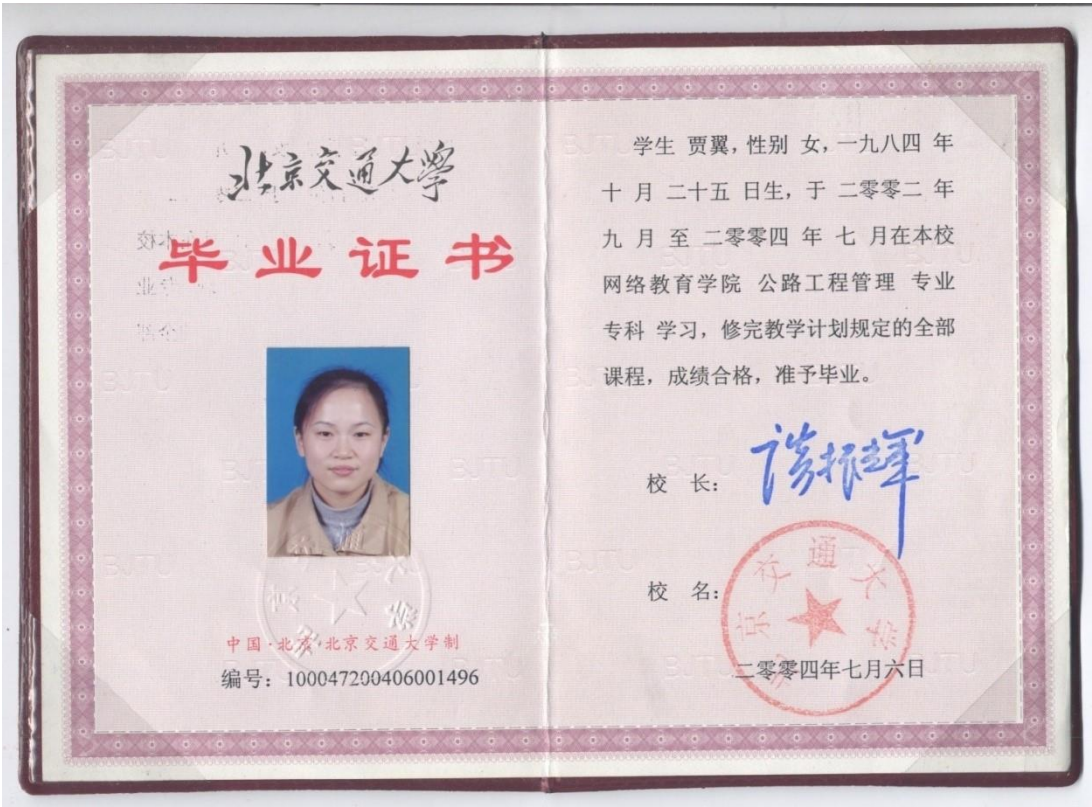 北京交通大學
毕业证书
中国·北京·北京交通大学制
编号：100047200406001496
学生 贾翼，性别 女，一九八四 年
十 月 二十五 日生，于 二零零二 年
九 月 至 二零零四 年 七 月在本校
网络教育学院 公路工程管理 专业
专科 学习，修完教学计划规定的全部
课程，成绩合格，准予毕业。
校 长：谈振辉
校 名：
北京交通大学
二零零四年七月六日
BJTU